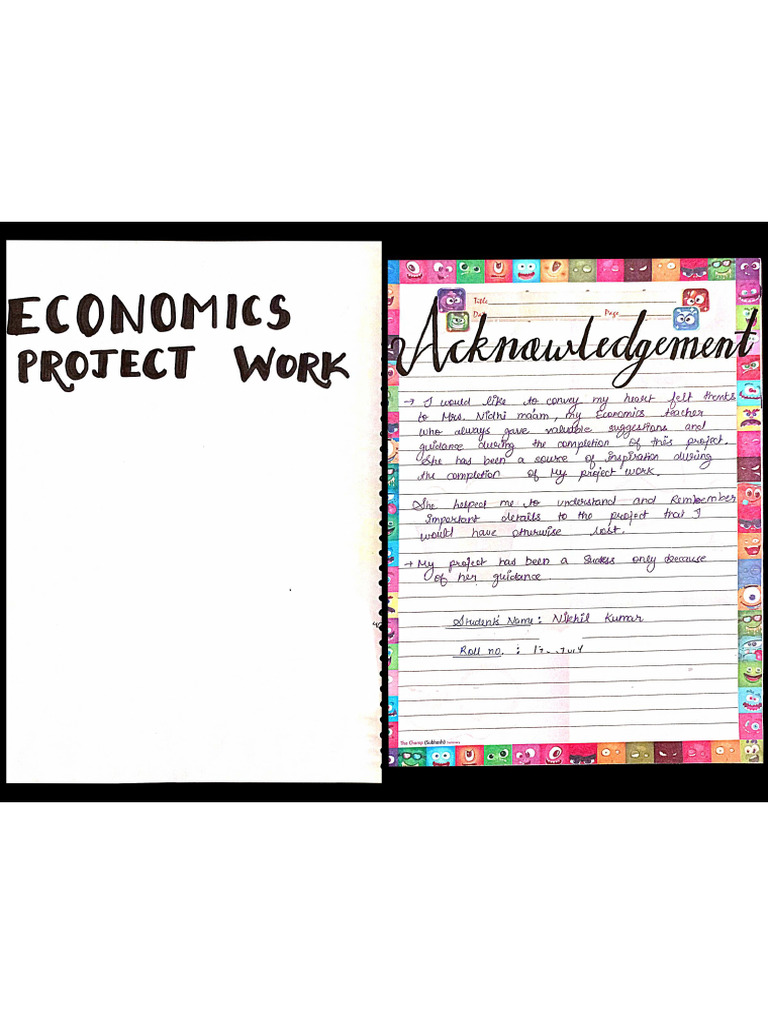 ECONOMICS
PROJECT WORK
Title
Page
Acknowledgement
→ I would like to convey my heart felt thanks
to Mrs. Nidhi ma'am, my Economics teacher
who always gave valuable suggestions and
guidance during the completion of this project.
She has been a source of inspiration during
the completion of My project work.
She helped me to understand and Remember
important details to the project that I
would have otherwise lost.
→ My project has been a Success only because
of her guidance
Student's Name : Nikhil Kumar
Roll no. :